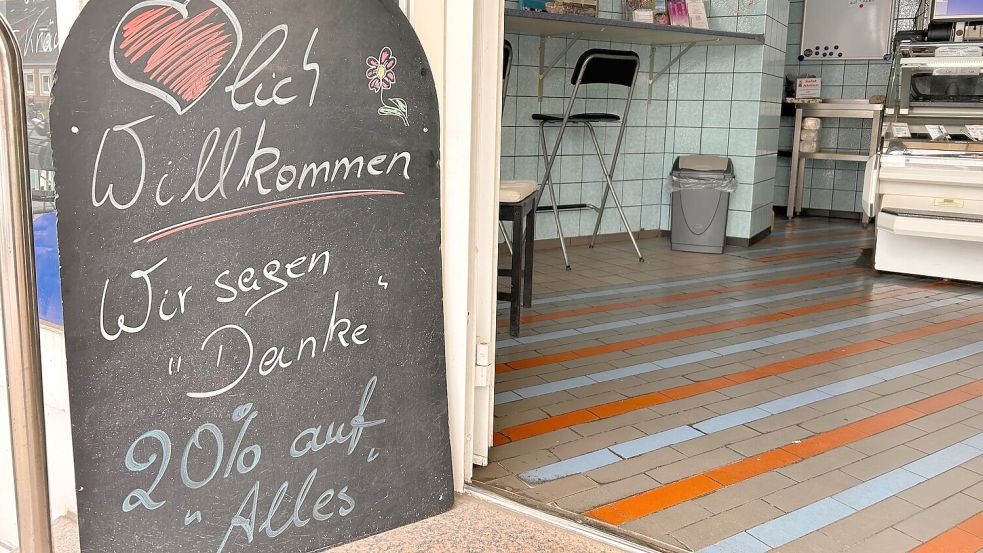 lich
Willkommen
Wir sagen
"Danke"
20% auf
"Alles"